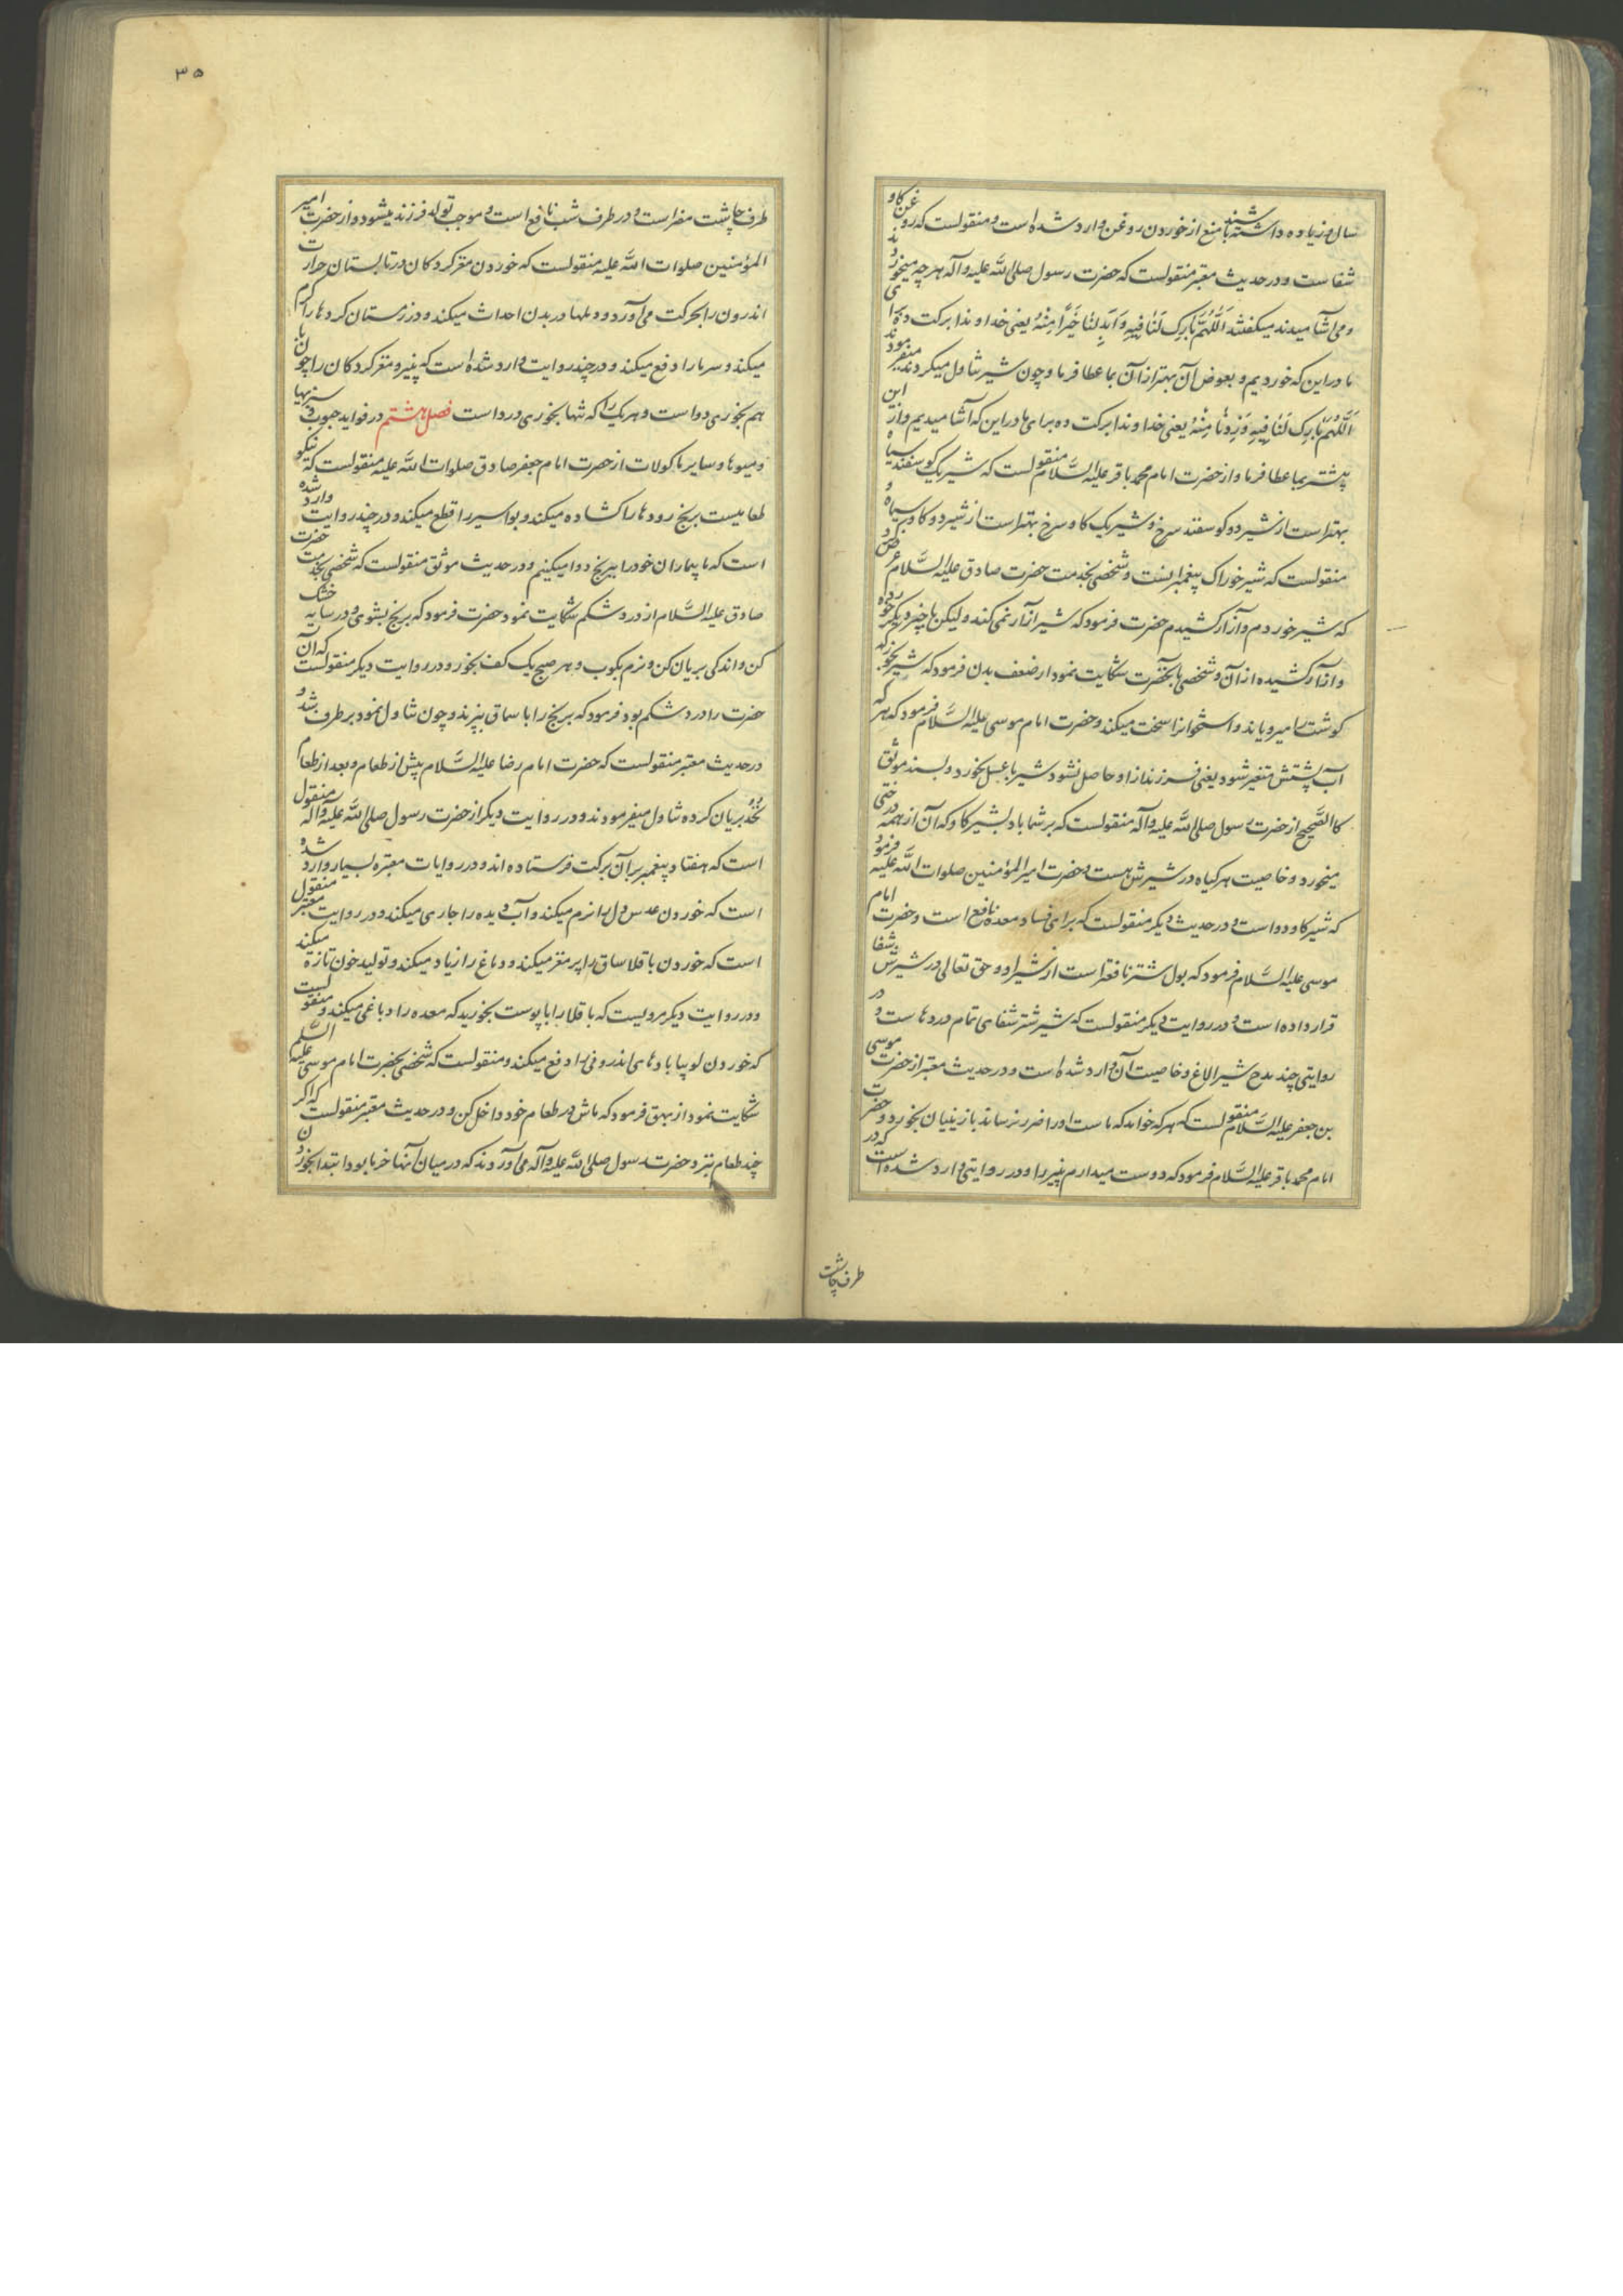 سال و زیاده داشته باشند منع از خوردن روغن وارد شده است و منقولست که روغن کاو
شفاست و در حدیث معتبر منقولست که حضرت رسول صلی الله علیه و آله هر چه میخوردند
و می آشامیدند میکفتند اَللّهُمَّ بارِک لَنا فیهِ وَ اَبدِلنا خَیراً مِنهُ یعنی خداوندا برکت ده برای
ما در این که خوردیم و بعوض آن بهتر از آن بما عطا فرما و چون شیر تناول میکردند میفرمودند
اَللّهُمَّ بارِک لَنا فیهِ وَ زِدنا مِنهُ یعنی خداوندا برکت ده برای ما در این که آشامیدیم و از این
بیشتر بما عطا فرما و از حضرت امام محمد باقر علیه السَّلام منقولست که شیر یک کوسفند سیاه
بهتر است از شیر دو کوسفند سرخ و شیر یک کاو سرخ بهتر است از شیر دو کاو سیاه و
منقولست که شیر خوراک پیغمبرانست و شخصی بخدمت حضرت صادق علیه السَّلام عرض کرد
که شیر خوردم و آزار کشیدم حضرت فرمود که شیر آزار نمی کند ولیکن با چیز دیکر خورده
و آزار کشیده از آن و شخصی بآنحضرت شکایت نمود از ضعف بدن فرمود که شیر بخور که
کوشت را میرویاند و استخوانرا سخت میکند و حضرت امام موسی علیه السَّلام فرمود که هر که
آب پشتش متغیر شود یعنی فرزند از او حاصل نشود شیر با عسل بخورد و بسند موثق
کالصَّحیح از حضرت رسول صلی الله علیه و آله منقولست که بر شما باد بشیر کاو که آن از همه درختی
میخورد و خاصیت هر کیاه در شیرش هست و حضرت امیر المؤمنین صلوات الله علیه فرمود
که شیر کاو دواست و در حدیث دیکر منقولست که برای فساد معده نافع است و حضرت امام
موسی علیه السَّلام فرمود که بول شتر نافعتر است از شیر او و حق تعالی در شیرش شفا
قرار داده است و در روایت دیکر منقولست که شیر شتر شفای تمام دردهاست و در
روایتی چند مدح شیر الاغ و خاصیت آن وارد شده است و در حدیث معتبر از حضرت موسی
بن جعفر علیه السَّلام منقولست که هر که خواهد که ماست او را ضرر نرساند با زنیان بخورد و حضرت
امام محمد باقر علیه السَّلام فرمود که دوست میدارم پنیر را و در روایتی وارد شده است که در
طرف چاشت
۳۵
طرف چاشت مضر است و در طرف شب نافع است و موجب تولد فرزند میشود و از حضرت امیر
المؤمنین صلوات الله علیه منقولست که خوردن مغز کردکان در تابستان حرارت
اندرون را بحرکت می آورد و دملها در بدن احداث میکند و در زمستان کرده ها را کرم
میکند و سرما را دفع میکند و در چند روایت وارد شده است که پنیر و مغز کردکان را چون با
هم بخوری دواست و هر یک را که تنها بخوری درد است فصل هشتم در فواید حبوب و سبزیها
و میوها و سایر ماکولات از حضرت امام جعفر صادق صلوات الله علیه منقولست که نیکو
طعامیست برنج رودها را کشاده میکند و بواسیر را قطع میکند و در چند روایت وارد شده
است که ما بیماران خود را ببرنج دوا میکنیم و در حدیث موثق منقولست که شخصی بخدمت حضرت
صادق علیه السَّلام از درد شکم شکایت نمود حضرت فرمود که برنج بشوی و در سایه خشک
کن و اندکی بریان کن و نرم بکوب و هر صبح یک کف بخور و در روایت دیکر منقولست که آن
حضرت را درد شکم بود فرمود که برنج را با سماق بپزند و چون تناول نمود بر طرف شد و
در حدیث معتبر منقولست که حضرت امام رضا علیه السَّلام پیش از طعام و بعد از طعام
نخود بریان کرده تناول میفرمودند و در روایت دیکر از حضرت رسول صلی الله علیه و آله منقول
است که هفتاد پیغمبر بر آن برکت فرستاده اند و در روایات معتبره بسیار وارد شده
است که خوردن عدس دل را نرم میکند و آب دیده را جاری میکند و در روایت معتبر منقول
است که خوردن باقلا ساق را پر مغز میکند و دماغ را زیاد میکند و تولید خون تازه میکند
و در روایت دیکر مرویست که باقلا را با پوست بخورید که معده را دباغی میکند و منقولست
که خوردن لوبیا بادهای اندرونی را دفع میکند و منقولست که شخصی بحضرت امام موسی علیه السَّلم
شکایت نمود از بهق فرمود که ماش در طعام خود داخل کن و در حدیث معتبر منقولست که اکر
چند طعام بنزد حضرت رسول صلی الله علیه و آله می آوردند که در میان آنها خرما بود ابتدا بخوردن